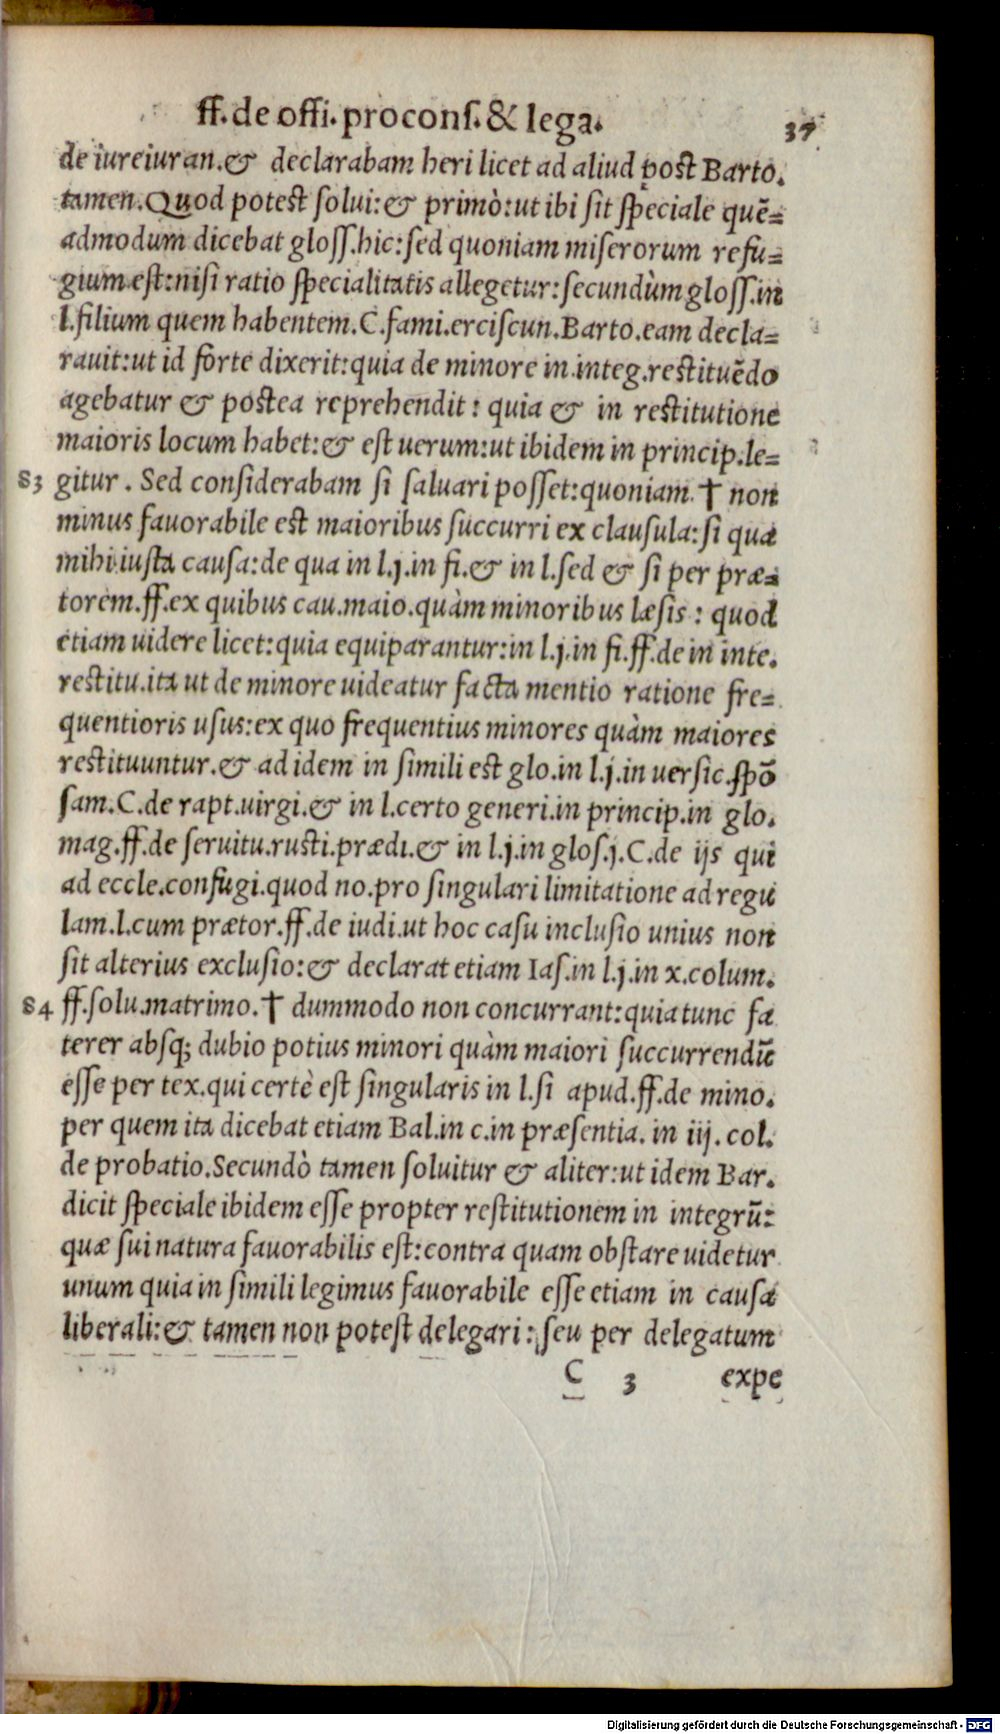 ff.de offi.procons.& lega.
37
de iureiuran.& declarabam heri licet ad aliud post Barto.
tamen.Quod potest solui:& primò:ut ibi sit speciale quē=
admodum dicebat gloss.hic:sed quoniam miserorum refu=
gium est:nisi ratio specialitatis allegetur:secundùm gloss.in
l.filium quem habentem.C.fami.erciscun.Barto.eam decla=
rauit:ut id forte dixerit:quia de minore in integ.restituēdo
agebatur & postea reprehendit: quia & in restitutione
maioris locum habet:& est uerum:ut ibidem in princip.le=
83 gitur. Sed considerabam si saluari posset:quoniam † non
minus fauorabile est maioribus succurri ex clausula:si qua
mihi iusta causa:de qua in l.j.in fi.& in l.sed & si per præ=
torem.ff.ex quibus cau.maio.quàm minoribus læsis: quod
etiam uidere licet:quia equiparantur:in l.j.in fi.ff.de in inte.
restitu.ita ut de minore uideatur facta mentio ratione fre=
quentioris usus:ex quo frequentius minores quàm maiores
restituuntur.& ad idem in simili est glo.in l.j.in uersic.spō
sam.C.de rapt.uirgi.& in l.certo generi.in princip.in glo.
mag.ff.de seruitu.rusti.prædi.& in l.j.in glos.j.C.de ijs qui
ad eccle.confugi.quod no.pro singulari limitatione ad regu
lam.l.cum prætor.ff.de iudi.ut hoc casu inclusio unius non
sit alterius exclusio:& declarat etiam Ias.in l.j.in x.colum.
84 ff.solu.matrimo.† dummodo non concurrant:quia tunc fa
terer absq; dubio potius minori quàm maiori succurrendū
esse per tex.qui certè est singularis in l.si apud.ff.de mino.
per quem ita dicebat etiam Bal.in c.in præsentia. in iij. col.
de probatio.Secundò tamen soluitur & aliter:ut idem Bar.
dicit speciale ibidem esse propter restitutionem in integrū:
quæ sui natura fauorabilis est:contra quam obstare uidetur
unum quia in simili legimus fauorabile esse etiam in causa
liberali:& tamen non potest delegari: seu per delegatum
C 3 expe
Digitalisierung gefördert durch die Deutsche Forschungsgemeinschaft - DFG